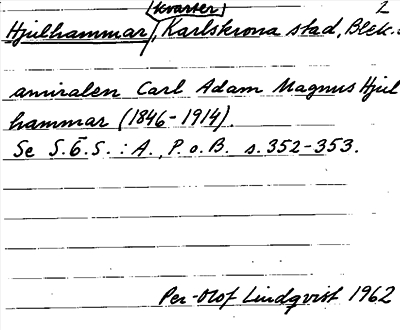 (kvarter) 2
Hjulhammar, Karlskrona stad, Blek.
amiralen Carl Adam Magnus Hjul
hammar (1846-1914).
Se S.Ö.S. : A., P. o. B. s. 352-353.
Per-Olof Lindqvist 1962